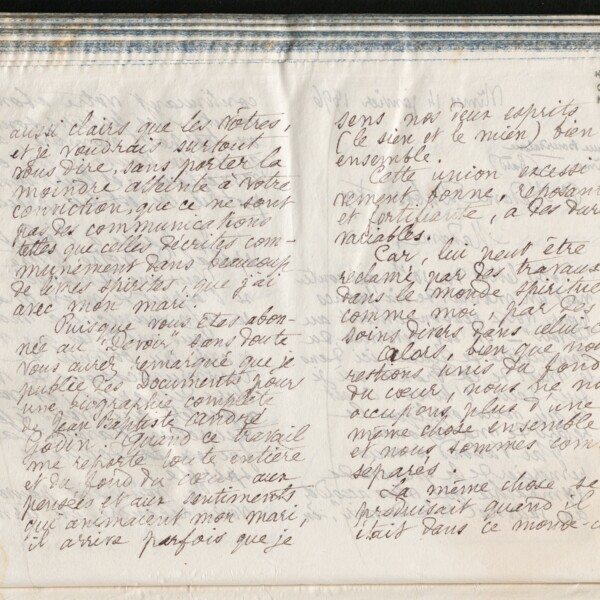 aussi clairs que les vôtres,
et je voudrais surtout
vous dire, sans porter la
moindre atteinte à votre
conviction, que ce ne sont
pas des communications
telles que celles décrites com-
munément dans beaucoup
de livres spirites, que j'ai
avec mon mari.
Puisque vous êtes abon-
née au "Devoir" sans doute
vous aurez remarqué que je
publie des Documents pour
une biographie complète
de Jean Baptiste André
Godin. Quand ce travail
me reporte toute entière
et du fond du cœur aux
pensées et aux sentiments
qui animaient mon mari,
il arrive parfois que je
sens nos deux esprits
(le sien et le mien) bien
ensemble.
Cette union excessi
vement bonne, reposan
et fortifiante, a des dur
variables.
Car, lui peut être
réclamé par des travaux
dans le monde spiritue
comme moi, par des
soins divers dans celui-c
Alors, bien que nou
restions unis du fond
du cœur, nous ne no
occupons plus d'une
même chose ensemble
et nous sommes com
séparés.
La même chose se
produisait quand il
était dans ce monde-c